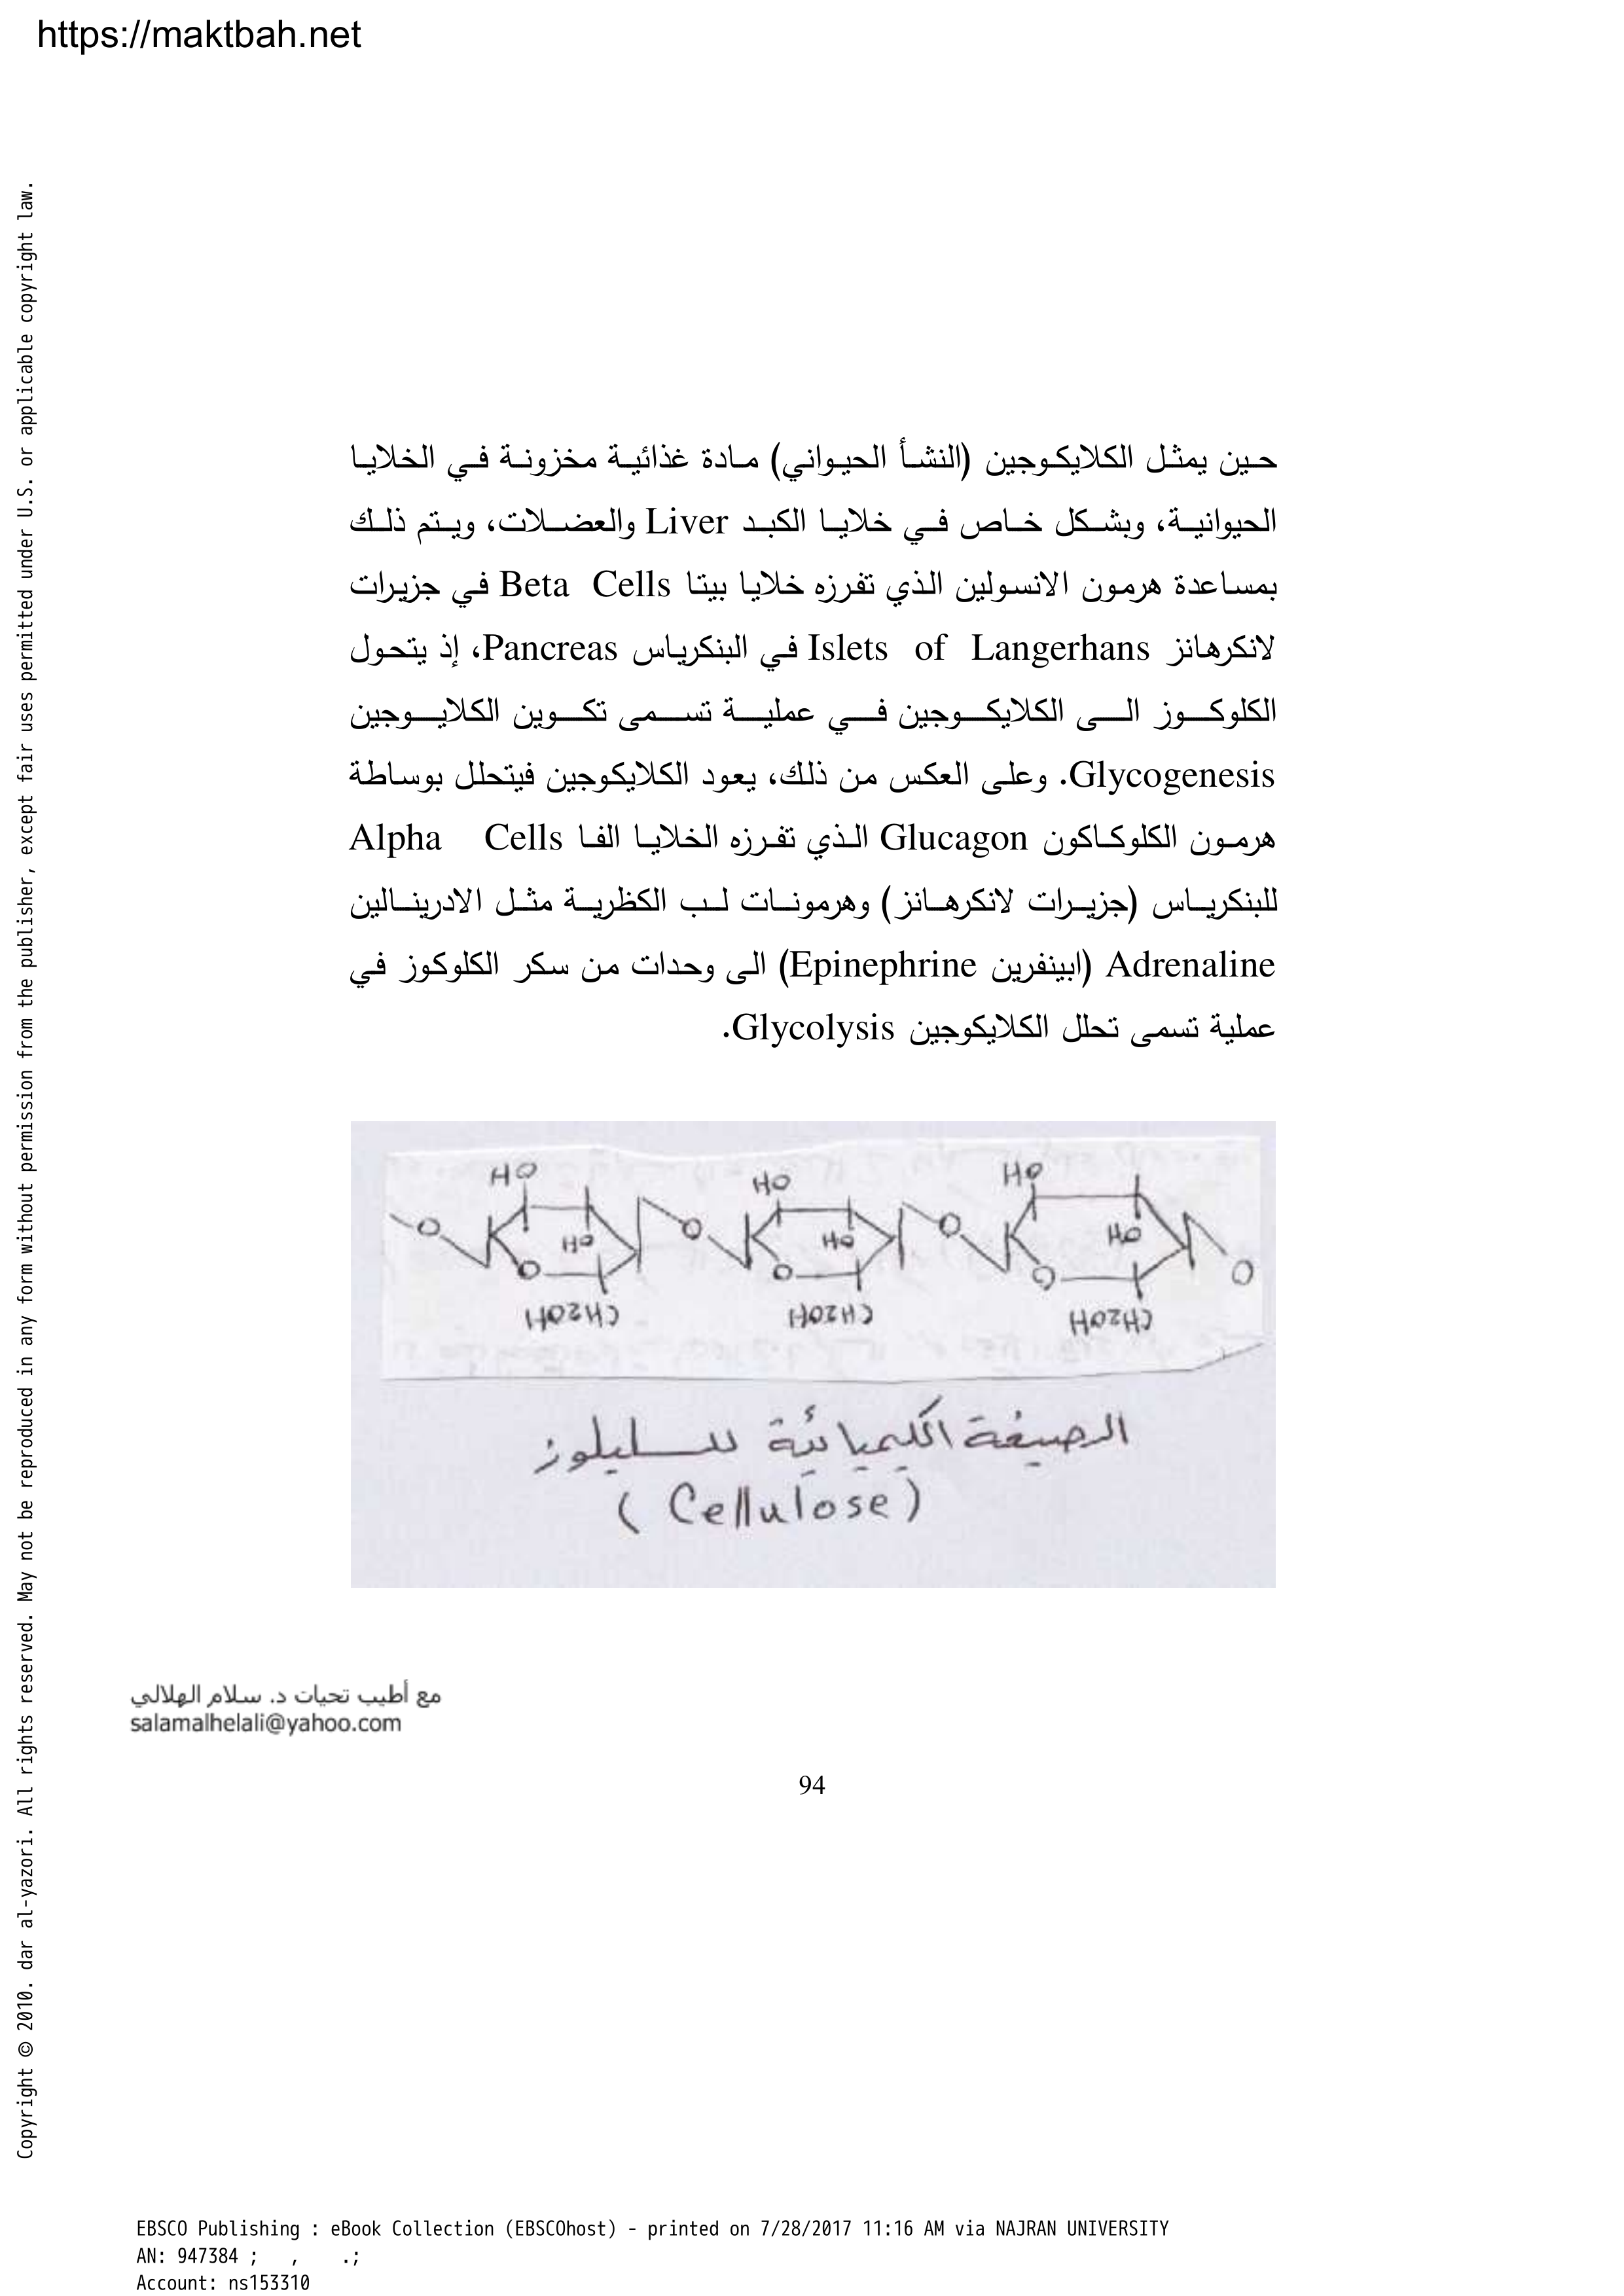 https://maktbah.net
Copyright © 2010. dar al-yazori. All rights reserved. May not be reproduced in any form without permission from the publisher, except fair uses permitted under U.S. or applicable copyright law.
حين يمثل الكلايكوجين (النشأ الحيواني) مادة غذائية مخزونة في الخلايا
الحيوانية، وبشكل خاص في خلايا الكبد Liver والعضلات، ويتم ذلك
بمساعدة هرمون الانسولين الذي تفرزه خلايا بيتا Beta Cells في جزيرات
لانكرهانز Islets of Langerhans في البنكرياس Pancreas، إذ يتحول
الكلوكوز الى الكلايكوجين في عملية تسمى تكوين الكلايوجين
Glycogenesis. وعلى العكس من ذلك، يعود الكلايكوجين فيتحلل بوساطة
هرمون الكلوكاكون Glucagon الذي تفرزه الخلايا الفا Alpha Cells
للبنكرياس (جزيرات لانكرهانز) وهرمونات لب الكظرية مثل الادرينالين
Adrenaline (ابينفرين Epinephrine) الى وحدات من سكر الكلوكوز في
عملية تسمى تحلل الكلايكوجين Glycolysis.
HO HO HO
O O O O
HO HO HO
O O O
CH2OH CH2OH CH2OH
الصيغة الكيميائية للسليلوز
( Cellulose )
مع أطيب تحيات د. سلام الهلالي
salamalhelali@yahoo.com
94
EBSCO Publishing : eBook Collection (EBSCOhost) - printed on 7/28/2017 11:16 AM via NAJRAN UNIVERSITY
AN: 947384 ; , .;
Account: ns153310